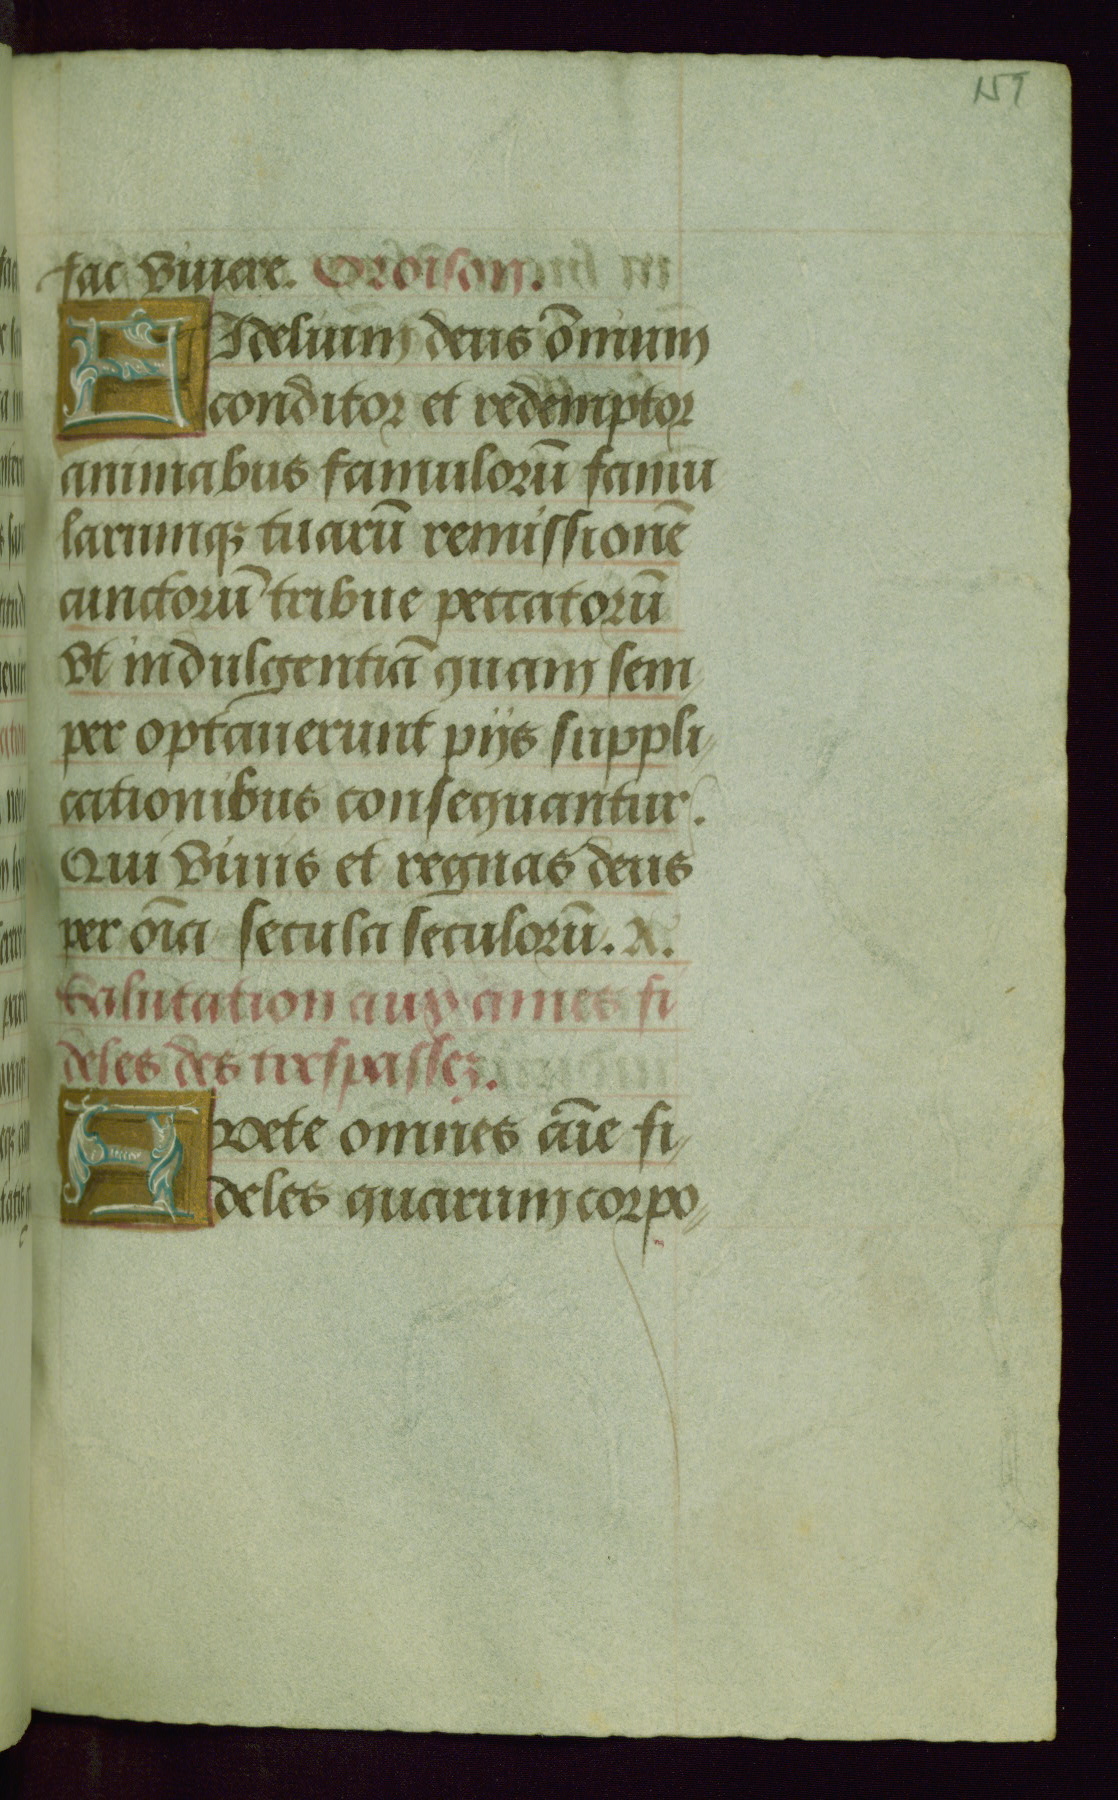 151
fac viuere. Oroison.
FIdelium deus om̄ium
conditor et redemptor
animabus famulorū famu
larumqꝫ tuarū remissionē
cunctorū tribue peccatorū
vt indulgentiā quam sem
per optauerunt pijs suppli
cationibus consequantur.
Qui viuis et regnas deus
per oīa secula seculorū. A.
Salutation aux ames fi
deles des trespassez.
AVete omnes aīe fi
deles quarum corpo